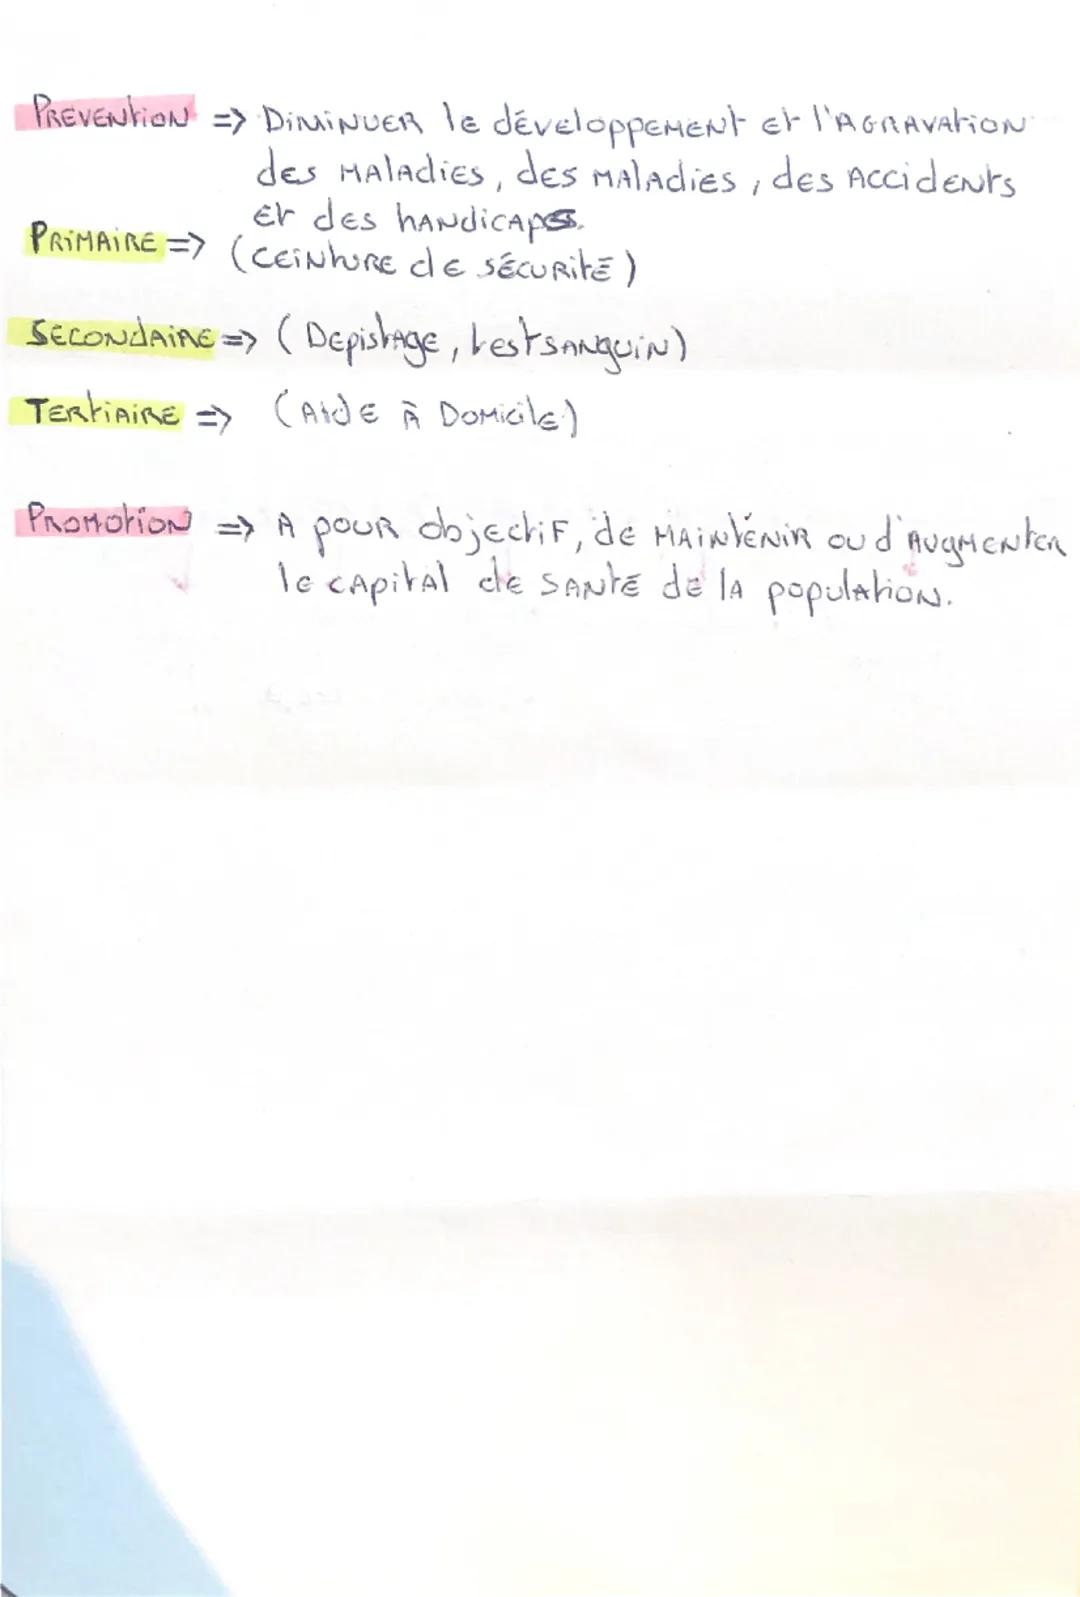 PREVENTION => DIMINUER le développement et l'AGRAVATION
des MALADIES, des MALADIES, des ACCIDENTS
et des HANDICAPS.
PRIMAIRE => (CEINTURE de SÉCURITÉ)
SECONDAIRE => (Depistage, test SANGUIN)
TERTIAIRE => (AIDE À DOMICILE)
PROMOTION => A pour objectif, de MAINTÉNIR ou d'AUGMENTER
le CAPITAL de SANTÉ de LA population.